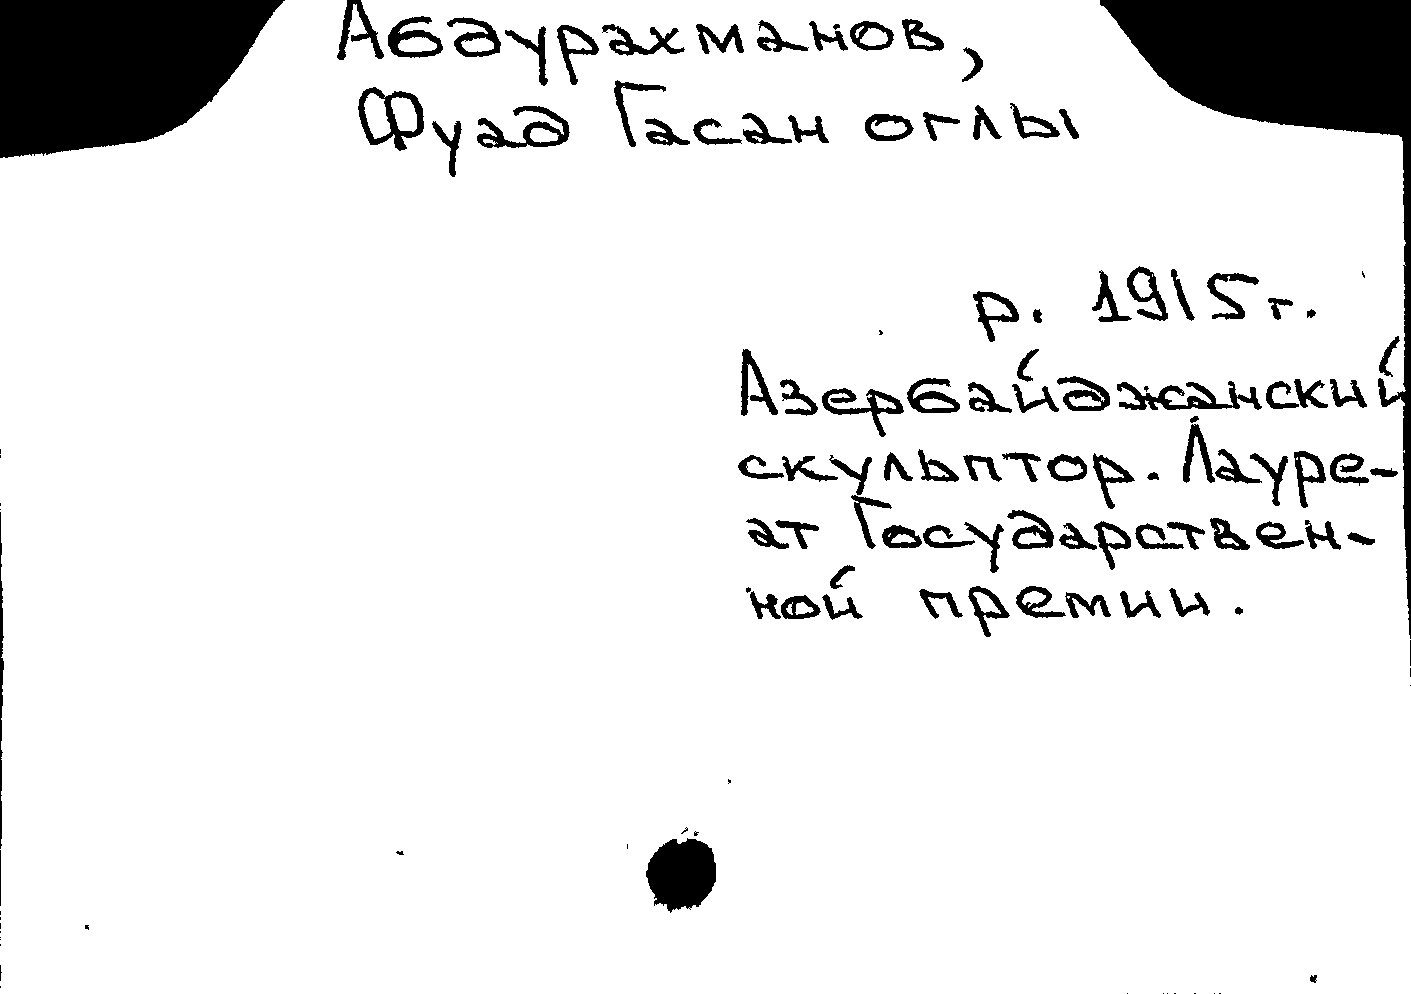 Абдурахманов,
Фуад Гасан оглы
р. 1915 г.
Азербайджанский
скульптор. Лауре-
ат Государствен-
ной премии.